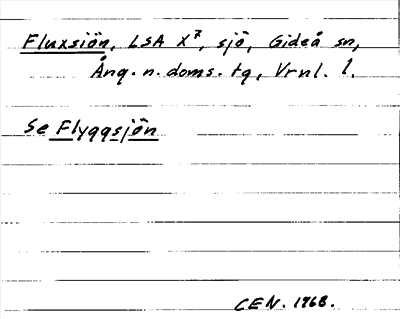 Fluxsiön, LSA X⁷, sjö, Gideå sn,
Ång. n. doms. tg, Vrnl. l.
Se Flyggsjön
CEN. 1968.